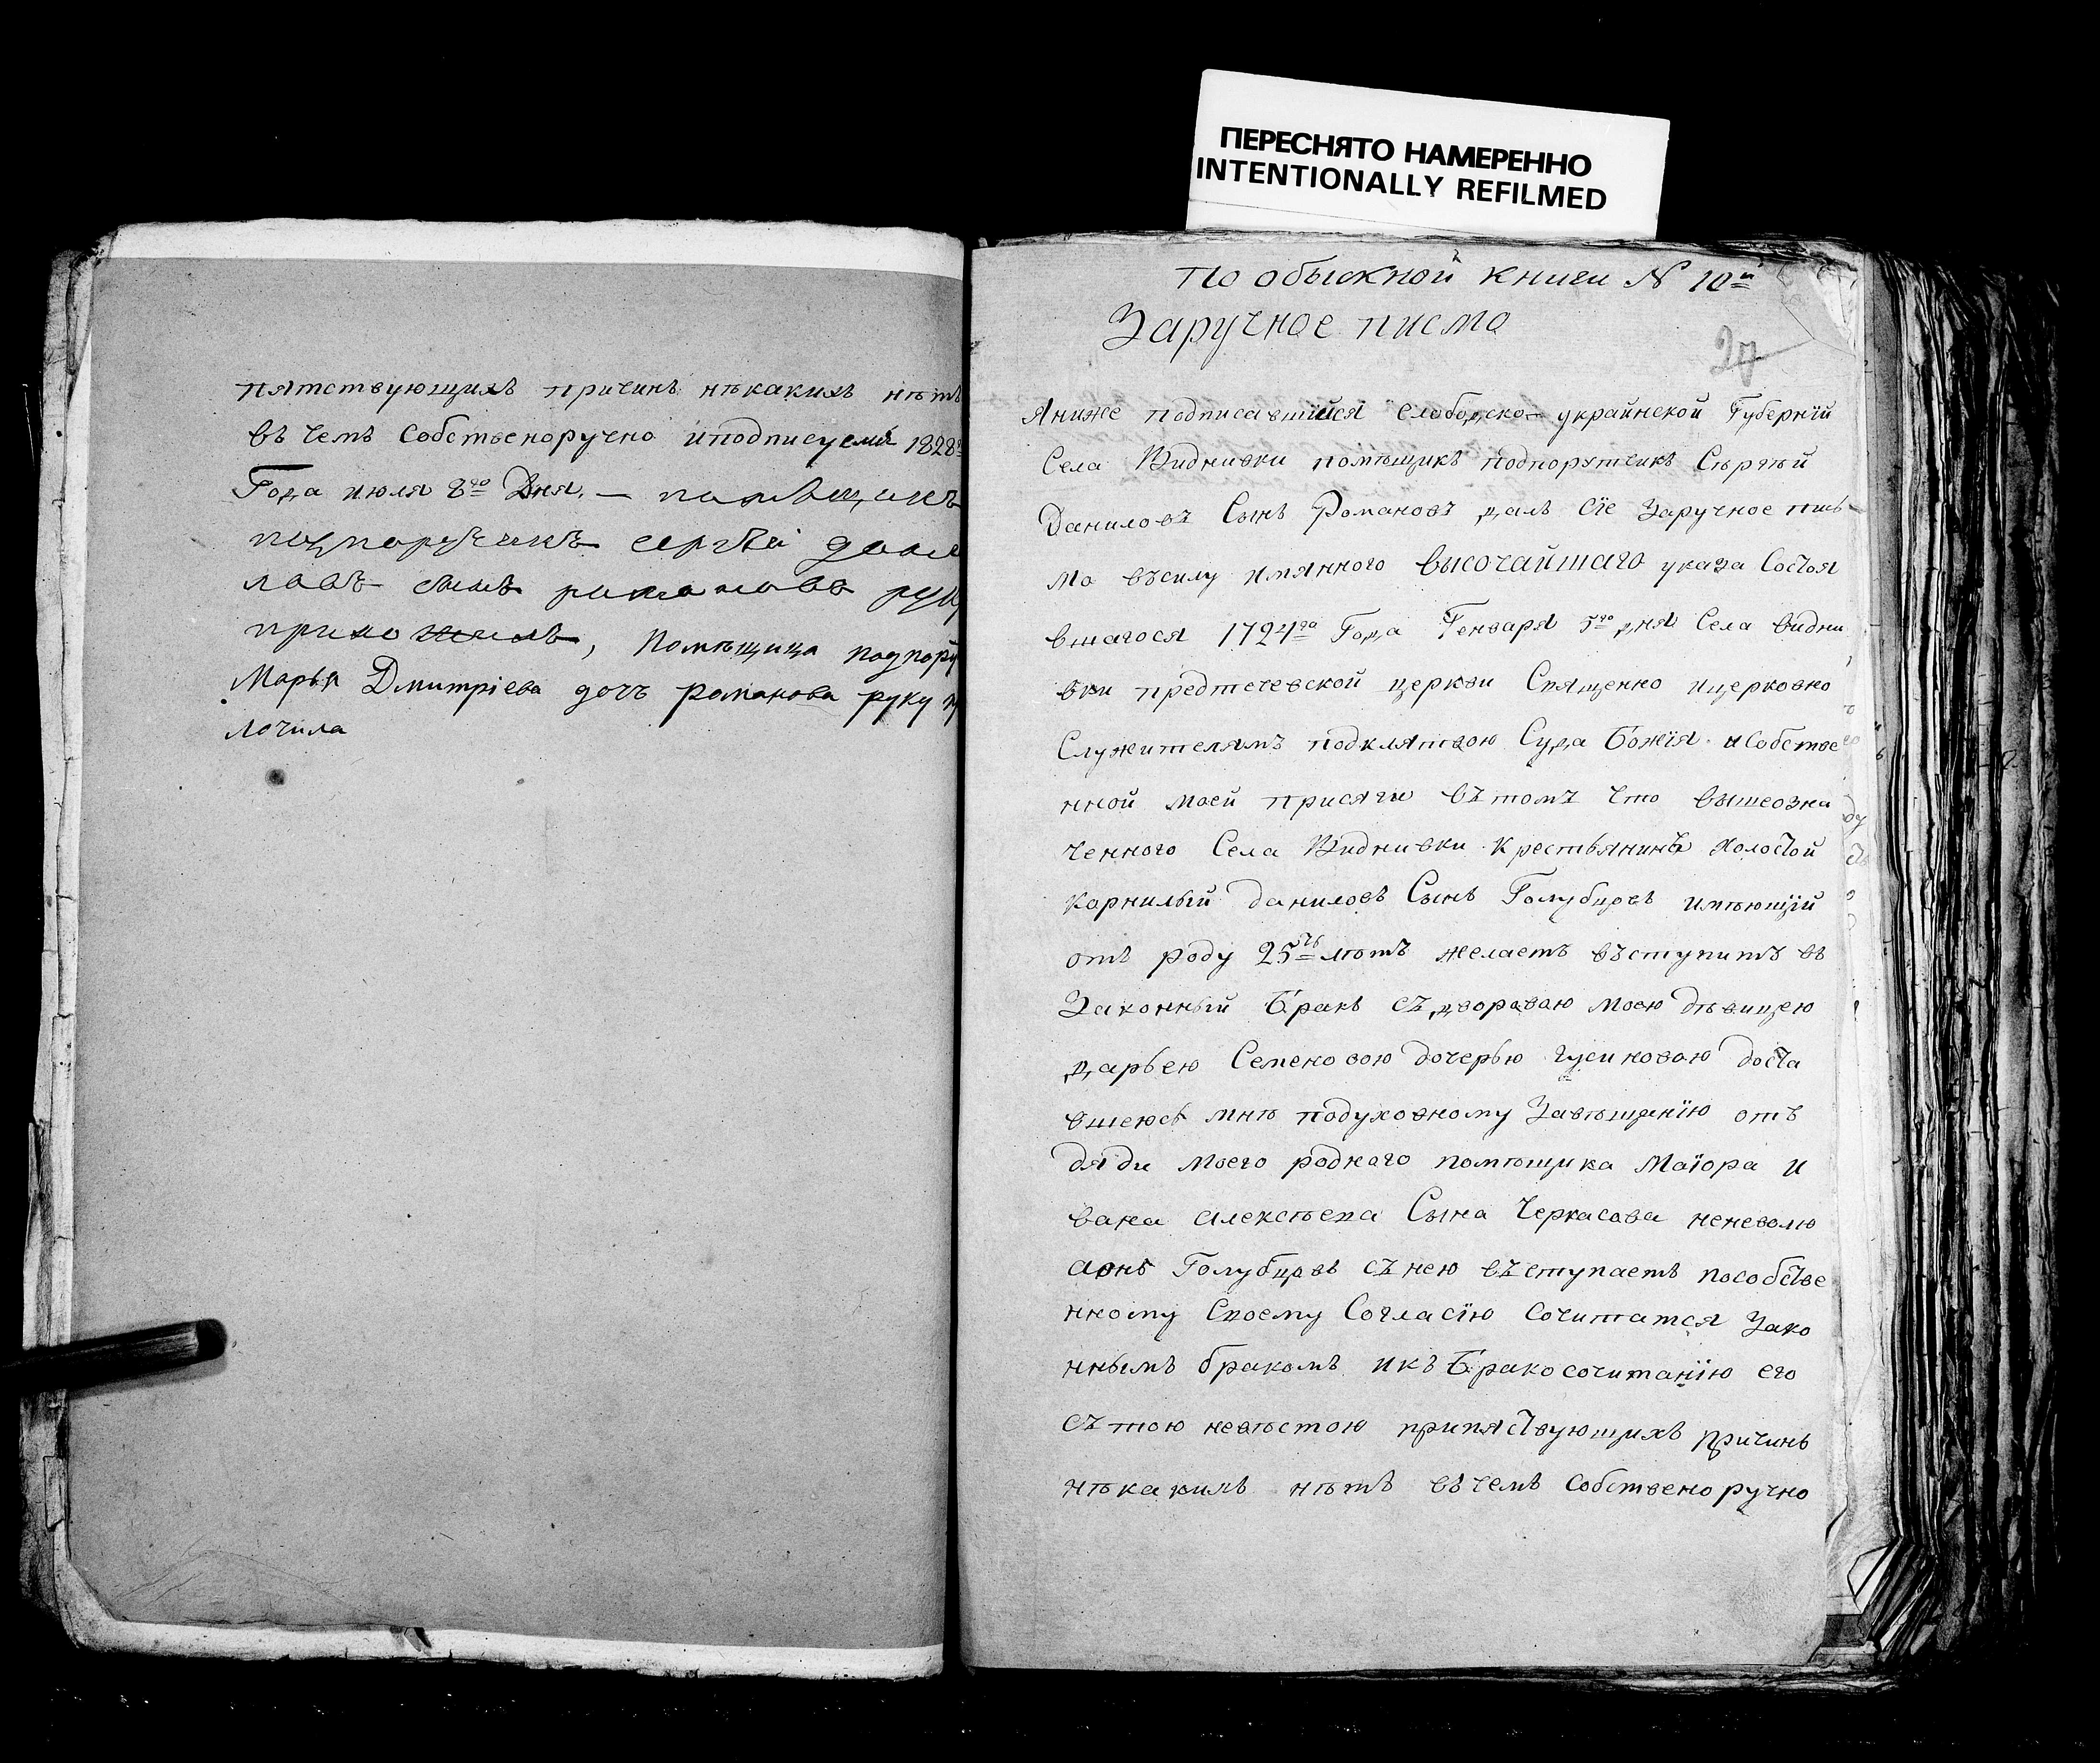 ПЕРЕСНЯТО НАМЕРЕННО
INTENTIONALLY REFILMED
пятствующихъ причинъ нѣкакихъ нѣтъ
въ чемъ собственоручно иподписуемъ 1828
Года июля 8го Дня. — помѣщикъ
подпоручикъ сергѣй дани
ловъ сынъ романовъ руку
приложилъ, Помѣщица подпору
Марья Дмитріева дочь романова руку п
ложила
По обыскной книги № 10й
Заручное писмо
27
Яниже подписавшійся слободско-украинской Губерніи
Села Виднивки помѣщикъ подпорутчикъ Сѣргѣй
Даниловъ Сынъ Романовъ далъ сіе Заручное пись-
мо въсилу имянного высочайшаго указа Состоя
вшагося 1724го Года Генваря 5го дня Села видни
вки предтечевской церкви Священно ицерковно
Служителямъ подклятвою Суда Божія и собстве
нной моей присяги въ томъ что вышеозна
ченного Села Виднивки крестьянинъ холостой
карнилый даниловъ Сынъ Голубцовъ имѣющій
отъ роду 25ть лѣтъ желаетъ въступить въ
Законный Бракъ съ дворавою моею дѣвицею
дарьею Семеновою дочерью гусиновою доста
вшеюсь мнѣ подуховному Завѣщанію отъ
дяди моего роднаго помѣщика Маіора и
вана алексѣева Сына Черкасова неневолю
аонъ Голубцовъ съ нею въступаетъ пособстве
нному Своему Согласію сочитатся Зако
ннымъ бракомъ икъ Бракосочитанію его
съ тою невѣстою припятствующихъ причинъ
нѣкакихъ нѣтъ въ чемъ собственоручно